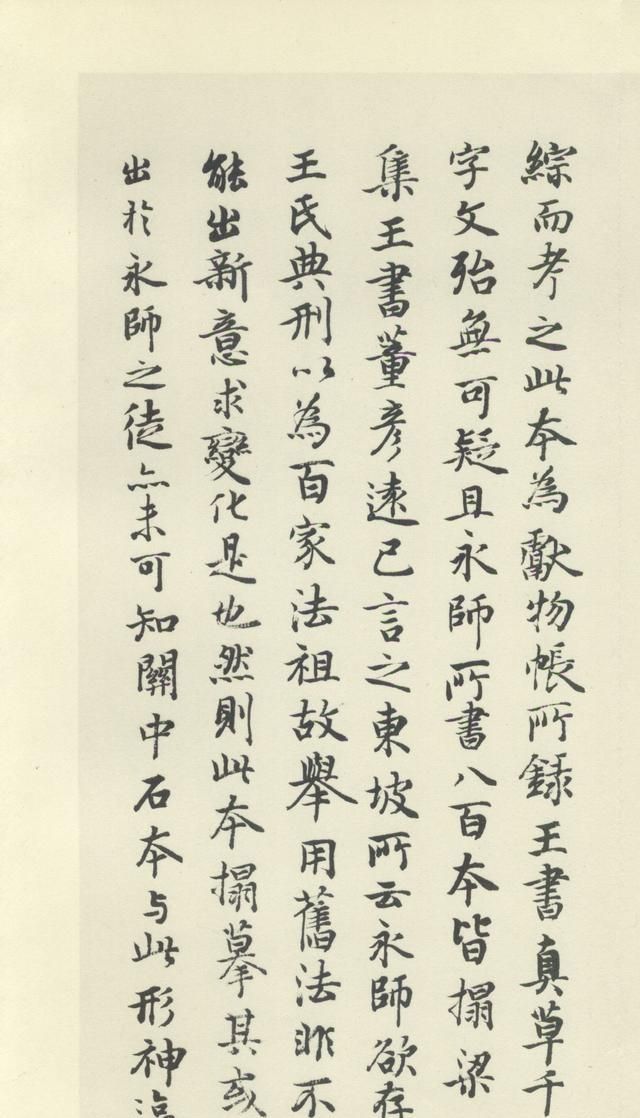 綜而考之此本為獻物帳所錄王書真草千
字文殆無可疑且永師所書八百本皆搨梁
集王書董彦遠已言之東坡所云永師欲存
王氏典刑以為百家法祖故舉用舊法非不
能出新意求變化是也然則此本搨摹其或
出於永師之徒亦未可知關中石本与此形神